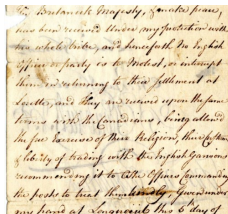 His Britanick Majesty, & make peace,
has been received under my protection with
his whole Tribe, and henceforth no English
officer or party is to molest, or interrupt
them in returning to their settlement at
Lorette, and they are received upon the same
terms with the Canadians, being allowed
the free Exercise of their Religion, their Customs
& liberty of trading with the English Garrisons
recommending it to the Officers Commanding
the posts to treat them kindly, Given under
my hand at Longueuil this 5th day of